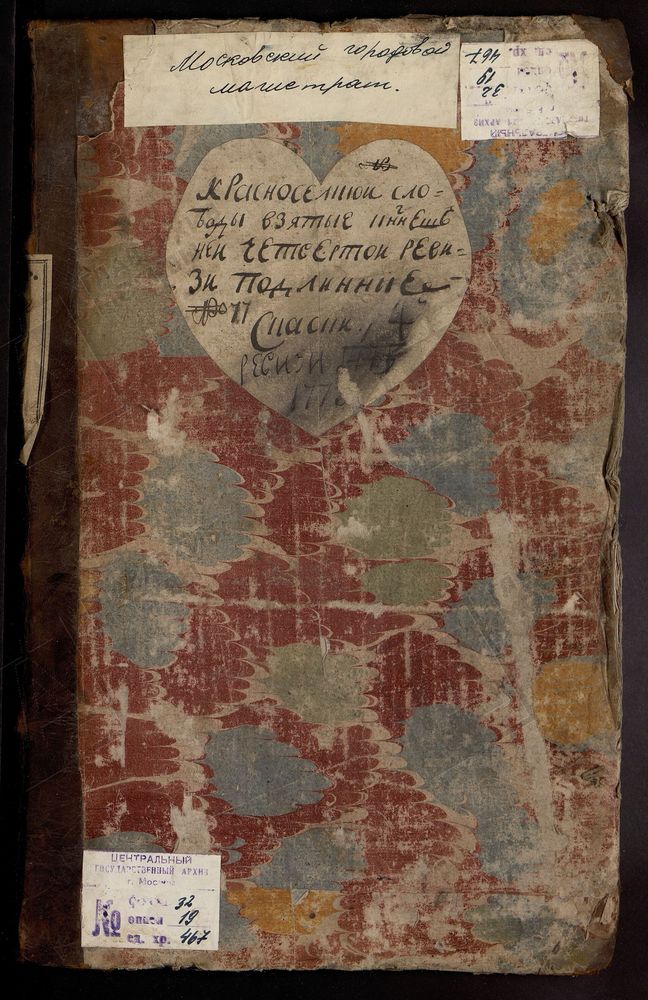 Московский городовой
магистрат.
ед. хр. 467
описи 19
32
Красноселкои сло-
боды взятые ннешЕ
неи четвертои реви-
зи подлинные
11
Спасин. 4
ревизи
177
ЦЕНТРАЛЬНЫЙ
ГОСУДАРСТВЕННЫЙ АРХИВ
г. Москвы
фонд 32
№ описи 19
ед. хр. 467